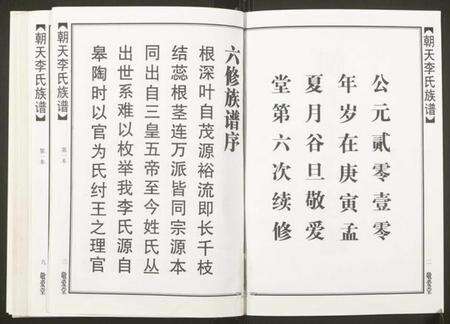 【朝天李氏族谱】
公元贰零壹零
年岁在庚寅孟
夏月谷旦敬爱
堂第六次续修
一
敬爱堂
【朝天李氏族谱】
第一本
六修族谱序
根深叶自茂源裕流即长千枝
结蕊根茎连万派皆同宗源本
同出自三皇五帝至今姓氏丛
出世系难以枚举我李氏源自
皋陶时以官为氏纣王之理官
二
敬爱堂
【朝天李氏族谱】
第一本
九
敬爱堂